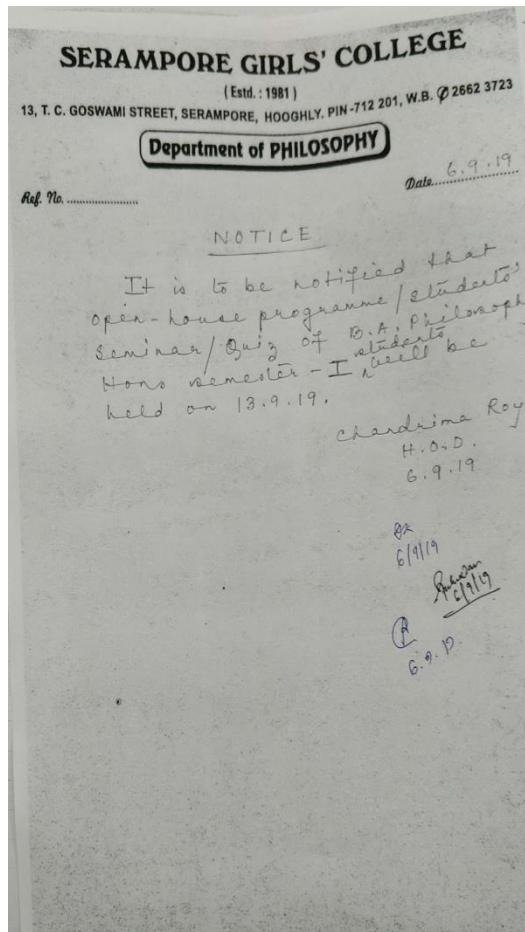 SERAMPORE GIRLS' COLLEGE
(Estd. : 1981)
13, T. C. GOSWAMI STREET, SERAMPORE, HOOGHLY. PIN-712 201, W.B. ✆ 2662 3723
Department of PHILOSOPHY
Ref. No. ......................
Date......................
6.9.19
NOTICE
It is to be notified that
open-house programme/students'
seminar/Quiz of B.A. Philosophy
Hons semester-I students will be
held on 13.9.19.
Chandrima Roy
H.O.D.
6.9.19
6/9/19
6/9/19
6.9.19.